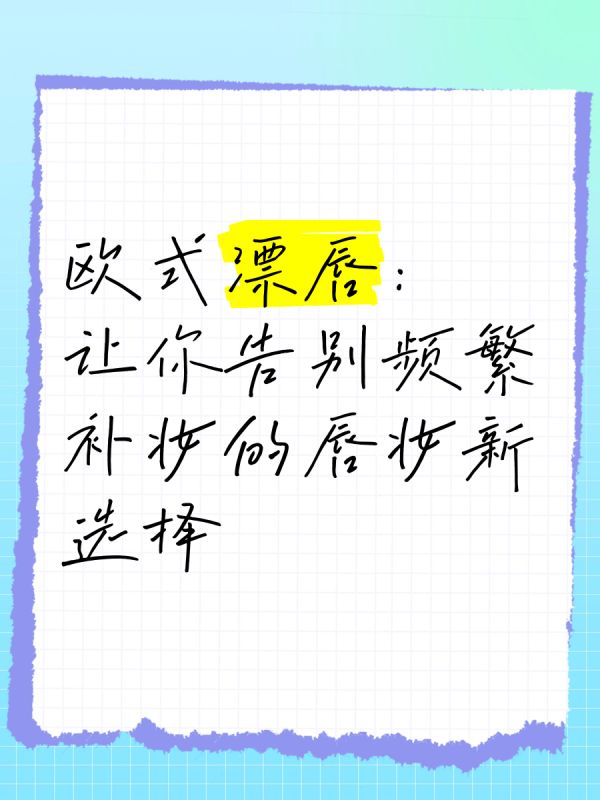 欧式漂唇：
让你告别频繁
补妆的唇妆新
选择